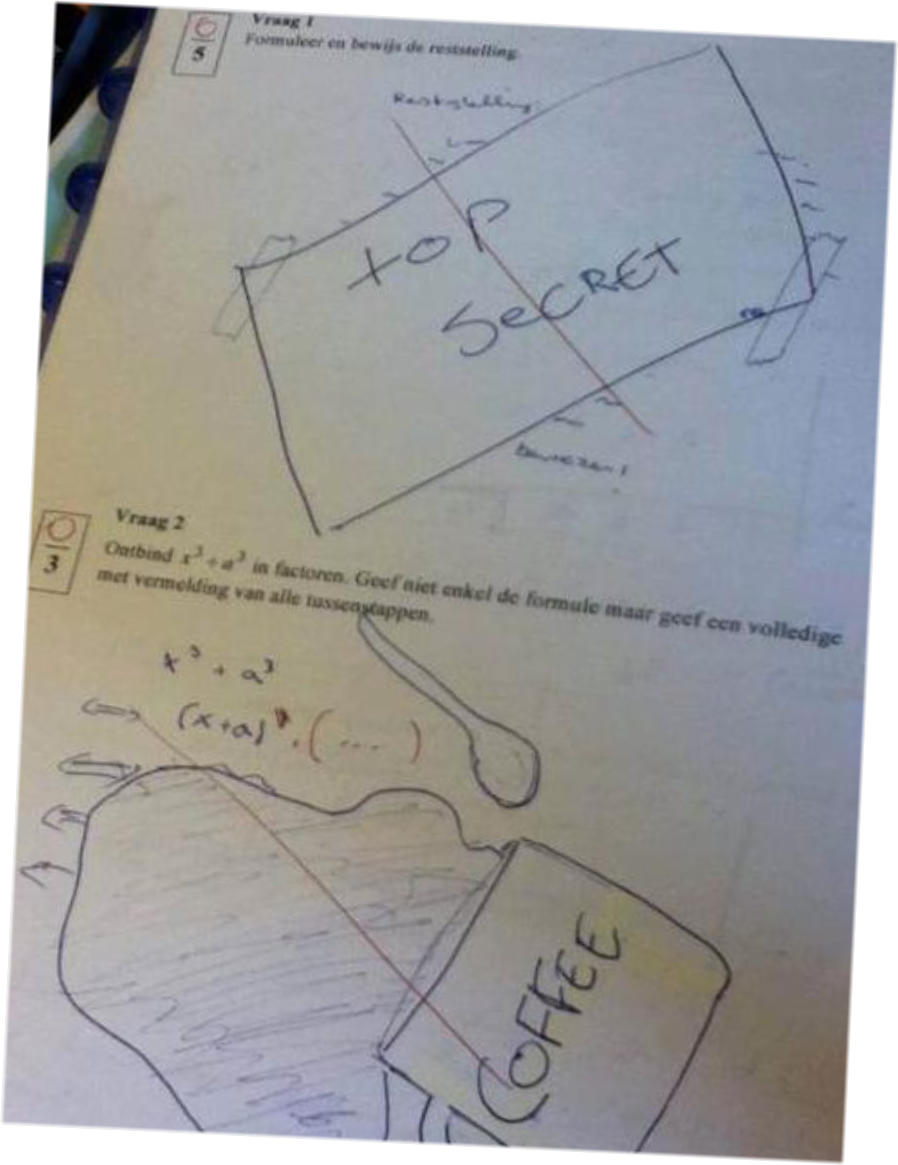 0
5
Vraag 1
Formuleer en bewijs de reststelling.
Reststelling:
TOP
SeCRET
0
3
Vraag 2
Ontbind x³+a³ in factoren. Geef niet enkel de formule maar geef een volledige
met vermelding van alle tussenstappen.
x³ + a³
(x+a) . ( ... )
COFFEE